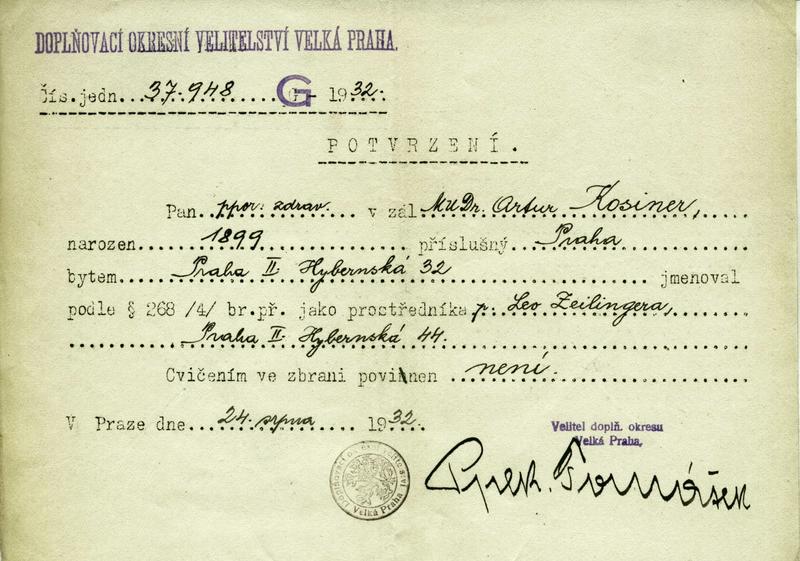 DOPLŇOVACÍ OKRESNÍ VELITELSTVÍ VELKÁ PRAHA.
Čís.jedn...37.948.....G - 1932.
POTVRZENÍ.
Pan..ppor. zdrav.... v zál..MUDr. Artur Kosiner,.....
narozen.......1899............. příslušný...Praha..........
bytem.....Praha II Hybernská 32............... jmenoval
podle § 268 /4/ br.př. jako prostředníka p. Leo Zeilingera,
.........Praha II Hybernská 44...........................
Cvičením ve zbrani povinnen ..není..................
V Praze dne...24. srpna...... 1932...
Velitel doplň. okresu
Velká Praha,
Pplk. Tomášek
Velká Praha